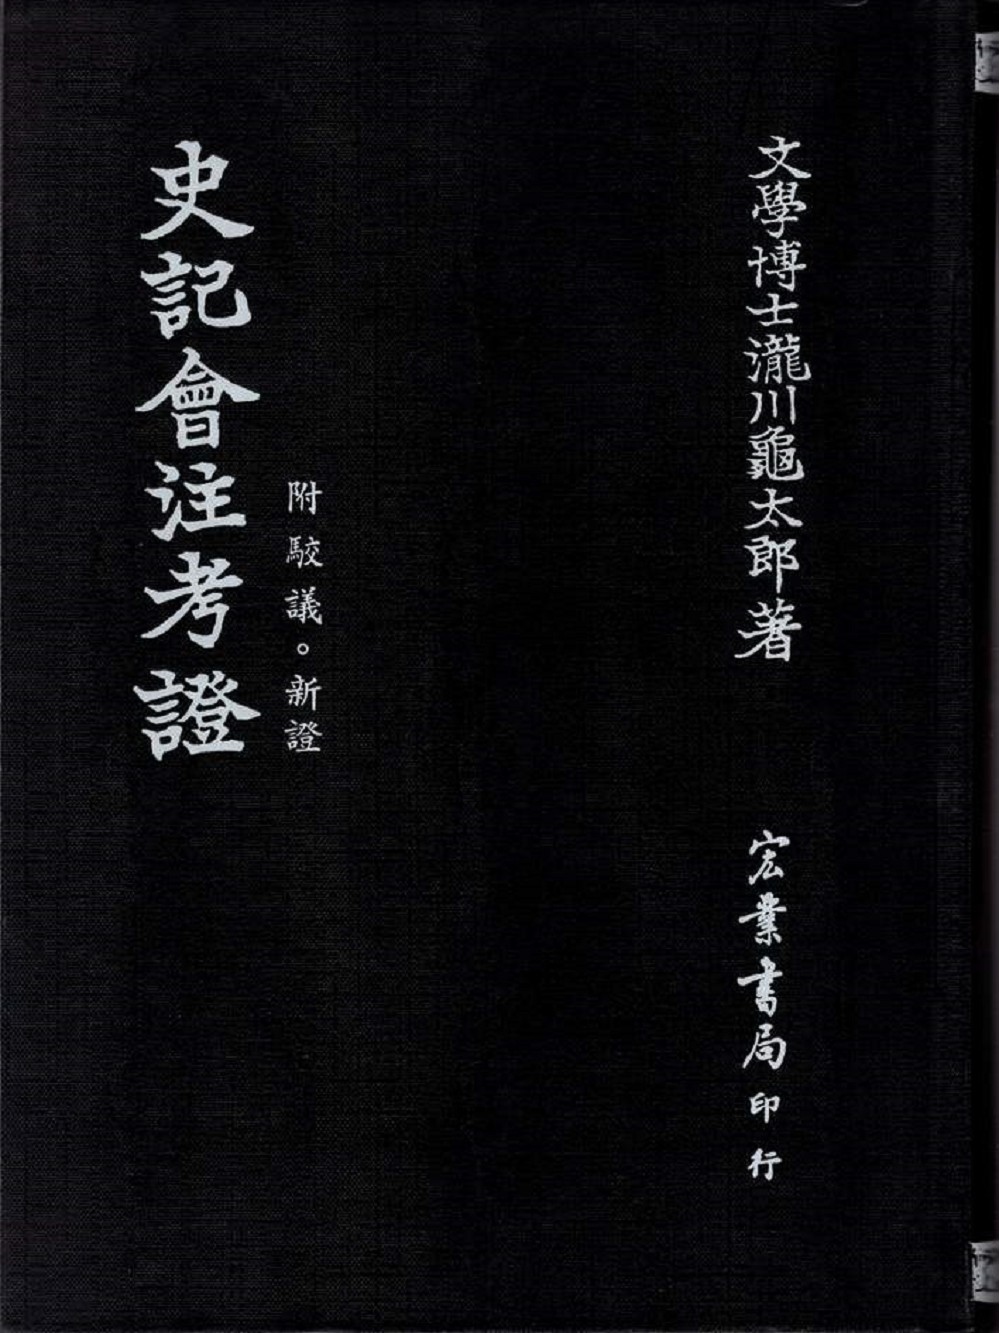 文學博士瀧川龜太郎著
宏業書局印行
附駮議。新證
史記會注考證